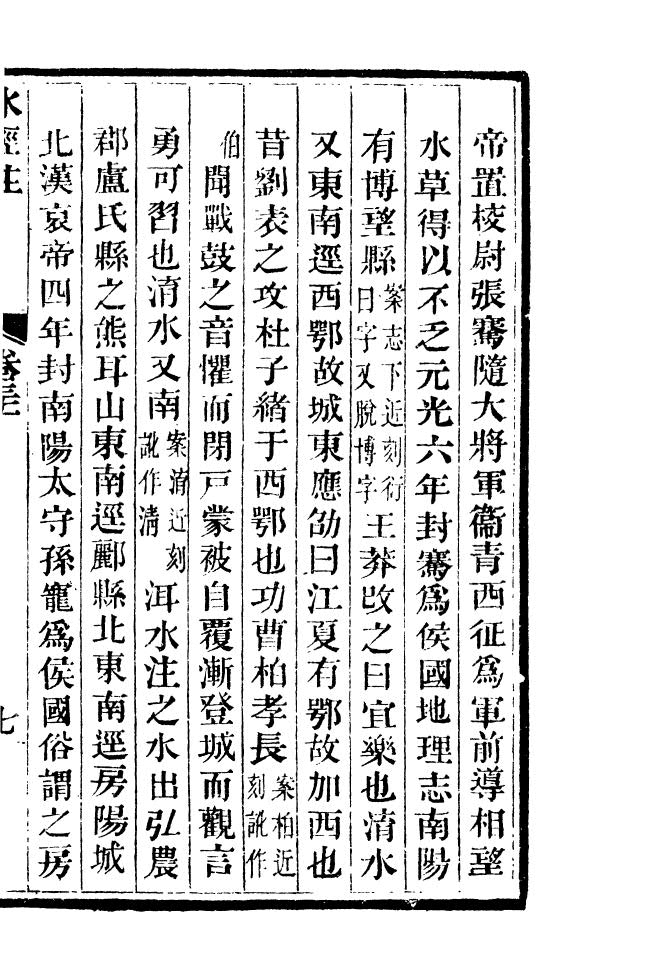 帝置校尉張騫隨大將軍衞青西征爲軍前導相望
水草得以不乏元光六年封騫爲侯國地理志南陽
有博望縣案志下近刻衍日字又脫博字王莽改之曰宜樂也淯水
又東南逕西鄂故城東應劭曰江夏有鄂故加西也
昔劉表之攻杜子緒于西鄂也功曹柏孝長案柏近刻訛作
伯聞戰鼓之音懼而閉戸蒙被自覆漸登城而觀言
勇可習也淯水又南案淯近刻訛作淸洱水注之水出弘農
郡盧氏縣之熊耳山東南逕酈縣北東南逕房陽城
北漢哀帝四年封南陽太守孫寵爲侯國俗謂之房
水經注
卷三十一
七